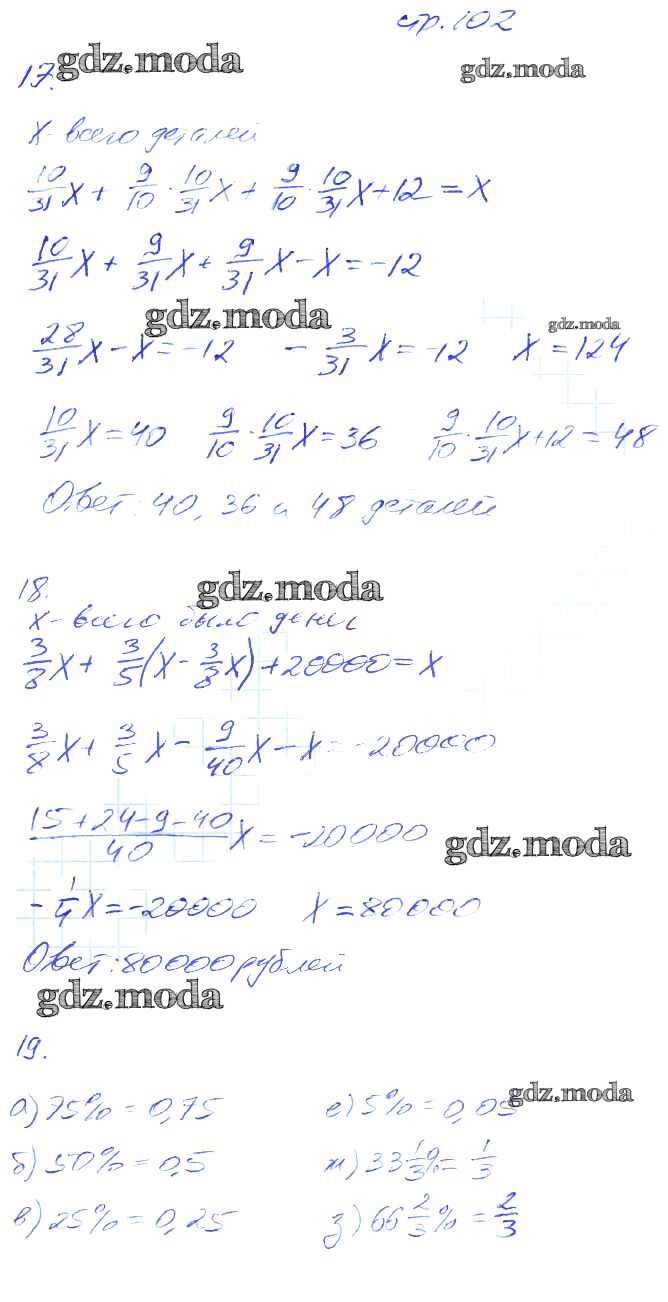 стр. 102
gdz.moda
gdz.moda
17.
x - всего деталей
10/31 x + 9/10 · 10/31 x + 9/10 · 10/31 x + 12 = x
10/31 x + 9/31 x + 9/31 x - x = -12
gdz.moda
gdz.moda
28/31 x - x = -12   - 3/31 x = -12   x = 124
10/31 x = 40   9/10 · 10/31 x = 36   9/10 · 10/31 x + 12 = 48
Ответ: 40, 36 и 48 деталей
18.
gdz.moda
x - всего было денег
3/8 x + 3/5 (x - 3/8 x) + 20000 = x
3/8 x + 3/5 x - 9/40 x - x = -20000
(15+24-9-40)/40 x = -20000
gdz.moda
- 1/4 x = -20000   x = 80000
Ответ: 80000 рублей
gdz.moda
19.
gdz.moda
а) 75% = 0,75   е) 5% = 0,05
б) 50% = 0,5   ж) 33 1/3 % = 1/3
в) 25% = 0,25   з) 66 2/3 % = 2/3